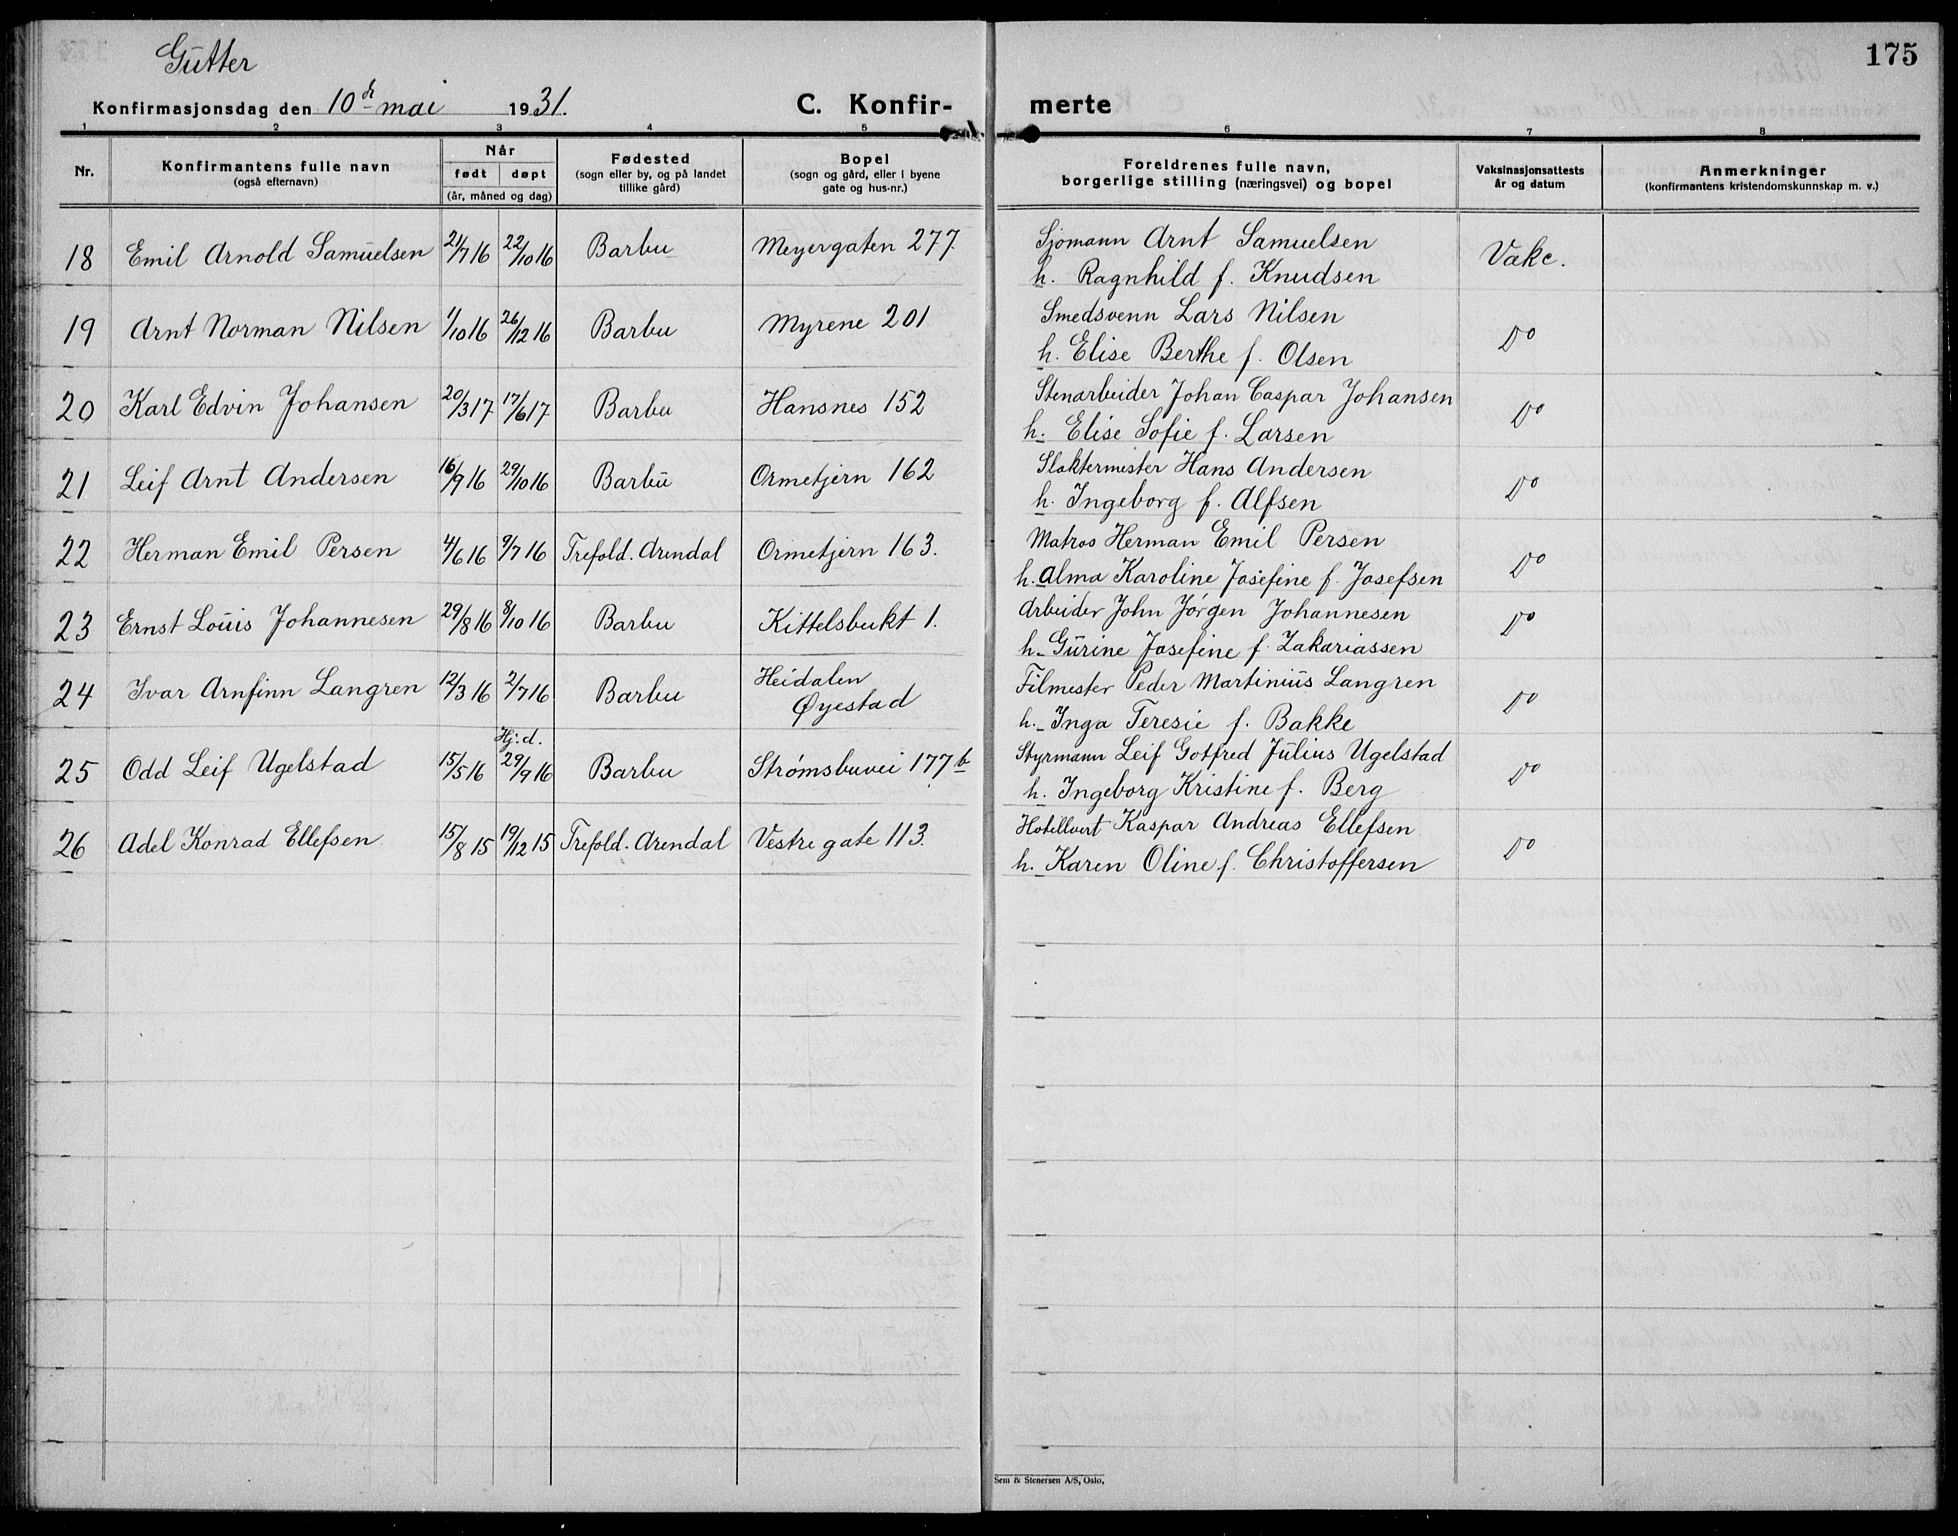 Gutter
175
Konfirmasjonsdag den 10de mai 1931.
C. Konfir- merte
1 2 3 4 5 6 7 8
Nr.
Konfirmantens fulle navn
(også efternavn)
Når
født døpt
(år, måned og dag)
Fødested
(sogn eller by, og på landet
tillike gård)
Bopel
(sogn og gård, eller i byene
gate og hus-nr.)
Foreldrenes fulle navn,
borgerlige stilling (næringsvei) og bopel
Vaksinasjonsattests
år og datum
Anmerkninger
(konfirmantens kristendomskunnskap m. v.)
18 Emil Arnold Samuelsen 21/7 16 22/10 16 Barbu Meyergaten 277. Sjømann Arnt Samuelsen Vakc.
h. Ragnhild f. Knudsen
19 Arnt Norman Nilsen 1/10 16 26/12 16 Barbu Myrene 201 Smedsvenn Lars Nilsen Do
h. Elise Berthe f. Olsen
20 Karl Edvin Johansen 20/3 17 17/6 17 Barbu Hansnes 152 Stenarbeider Johan Caspar Johansen Do
h. Elise Sofie f. Larsen
21 Leif Arnt Andersen 16/9 16 29/10 16 Barbu Ormetjern 162 Slaktermester Hans Andersen Do
h. Ingeborg f. Alfsen
22 Herman Emil Persen 4/6 16 9/7 16 Trefold. Arendal Ormetjern 163. Matros Herman Emil Persen Do
h. Alma Karoline Josefine f. Josefsen
23 Ernst Louis Johannesen 29/8 16 8/10 16 Barbu Kittelsbukt 1. Arbeider John Jørgen Johannesen Do
h. Gurine Josefine f. Zakariassen
24 Ivar Arnfinn Langren 12/3 16 2/7 16 Barbu Heidalen Filmester Peder Martinius Langren Do
Øyestad h. Inga Teresie f. Bakke
Hj.d.
25 Odd Leif Ugelstad 15/5 16 29/9 16 Barbu Strømsbuvei 177 b Styrmann Leif Gotfred Julius Ugelstad Do
h. Ingeborg Kristine f. Berg
26 Adel Konrad Ellefsen 15/8 15 19/12 15 Trefold. Arendal Vestre gate 113. Hotellvert Kaspar Andreas Ellefsen Do
h. Karen Oline f. Christoffersen
Sem & Stenersen A/S, Oslo.